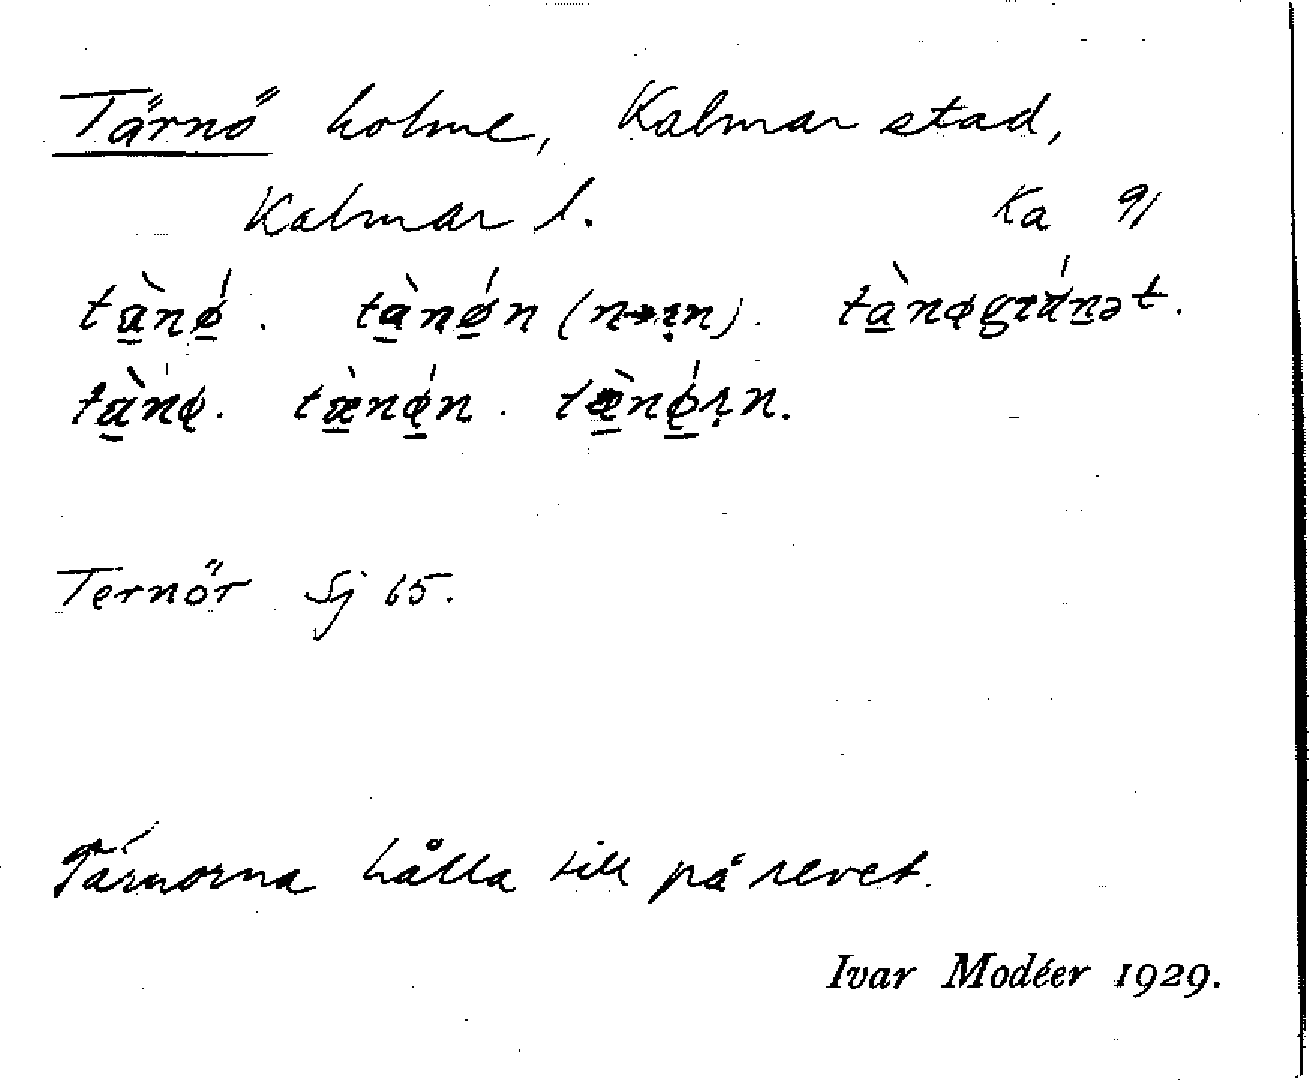 Tärnö holme, Kalmar stad,
Kalmar l. Ka 91
tànǿ. tànǿn (n→ṛn). tànøgránət.
tànø. tæ̀nǿn. tæ̀nǿṛn.
Ternör Sj 65.
Tärnorna hålla till på revet.
Ivar Modéer 1929.